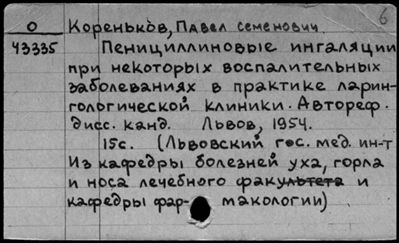 6
О Кореньков, Павел Семенович.
43335 Пенициллиновые ингаляции
при некоторых воспалительных
заболеваниях в практике ларин-
гологической клиники. Автореф.
дисс. канд. Львов, 1954.
15с. (Львовский гос. мед. ин-т
Из кафедры болезней уха, горла
и носа лечебного факультета и
кафедры фар- макологии)